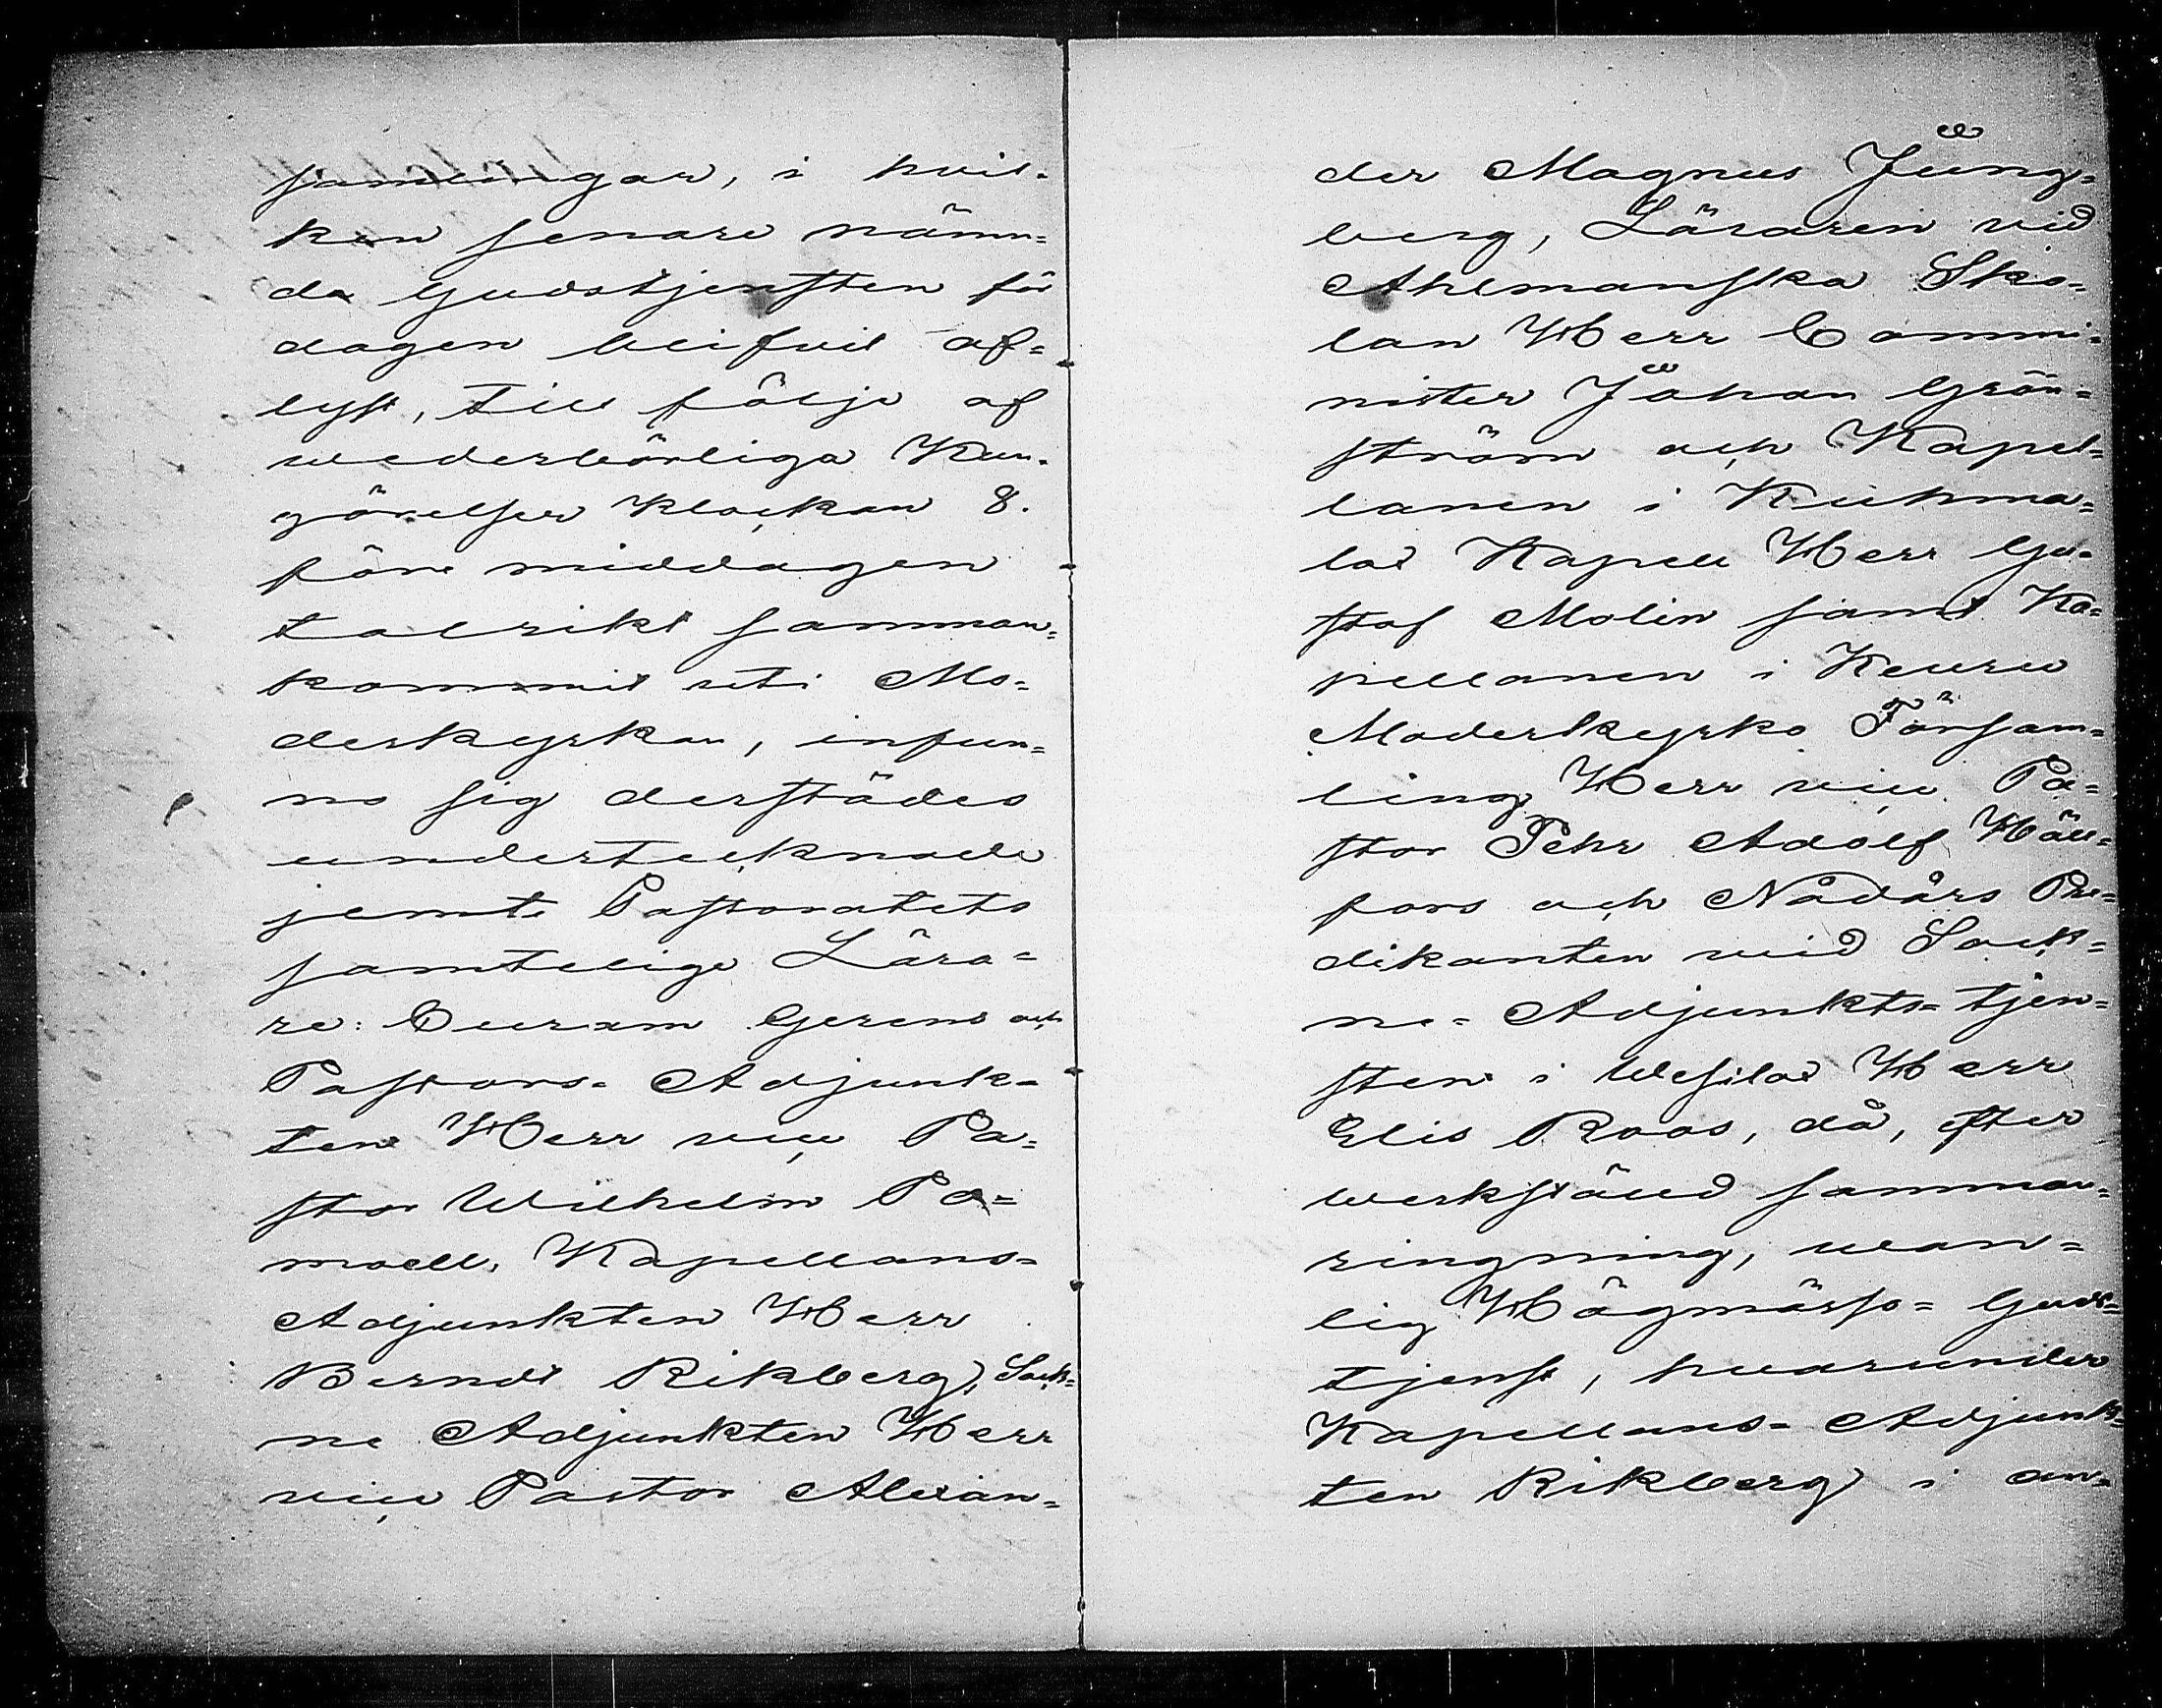 samlingar, i hvil-
ken senare nämn=
da Gudstjensten för
dagen blifvit af=
lyst, till följe af
wederbörliga Kun-
görelser Klockan 8.
före middagen
talrikt samman=
kommit uti Mo=
derkyrkan, infun=
no sig derstädes
undertecknade
jemte Pastoratets
samtelige Lära=
re: Curam Gerens och
Pastors=Adjunk=
ten Herr vice Pa=
stor Wilhelm Po=
moell, Kapellans=
Adjunkten Herr
Berndt Rikberg, Sock=
ne Adjunkten Herr
vice Pastor Alexan=
der Magnus Ljung=
berg, Läraren vid
Ahlmanska Sko=
lan Herr Commi=
nister Johan Grön=
ström och Kapel=
lanen i Kuhma=
lax Kapell Herr Gu=
staf Molin samt Ka=
pellanen i Keuru
Moderkyrko Försam=
ling Herr vice Pa=
stor Pehr Adolf Häll=
fors och Nådårs Pre=
dikanten vid Sock=
ne=Adjunkts=tjen=
sten i Wesilax Herr
Elis Roos, då, efter
werkställd samman=
ringning, wan=
lig Högmässo=Guds=
tjenst, hvarunder
Kapellans=Adjunk=
ten Rikberg i an=